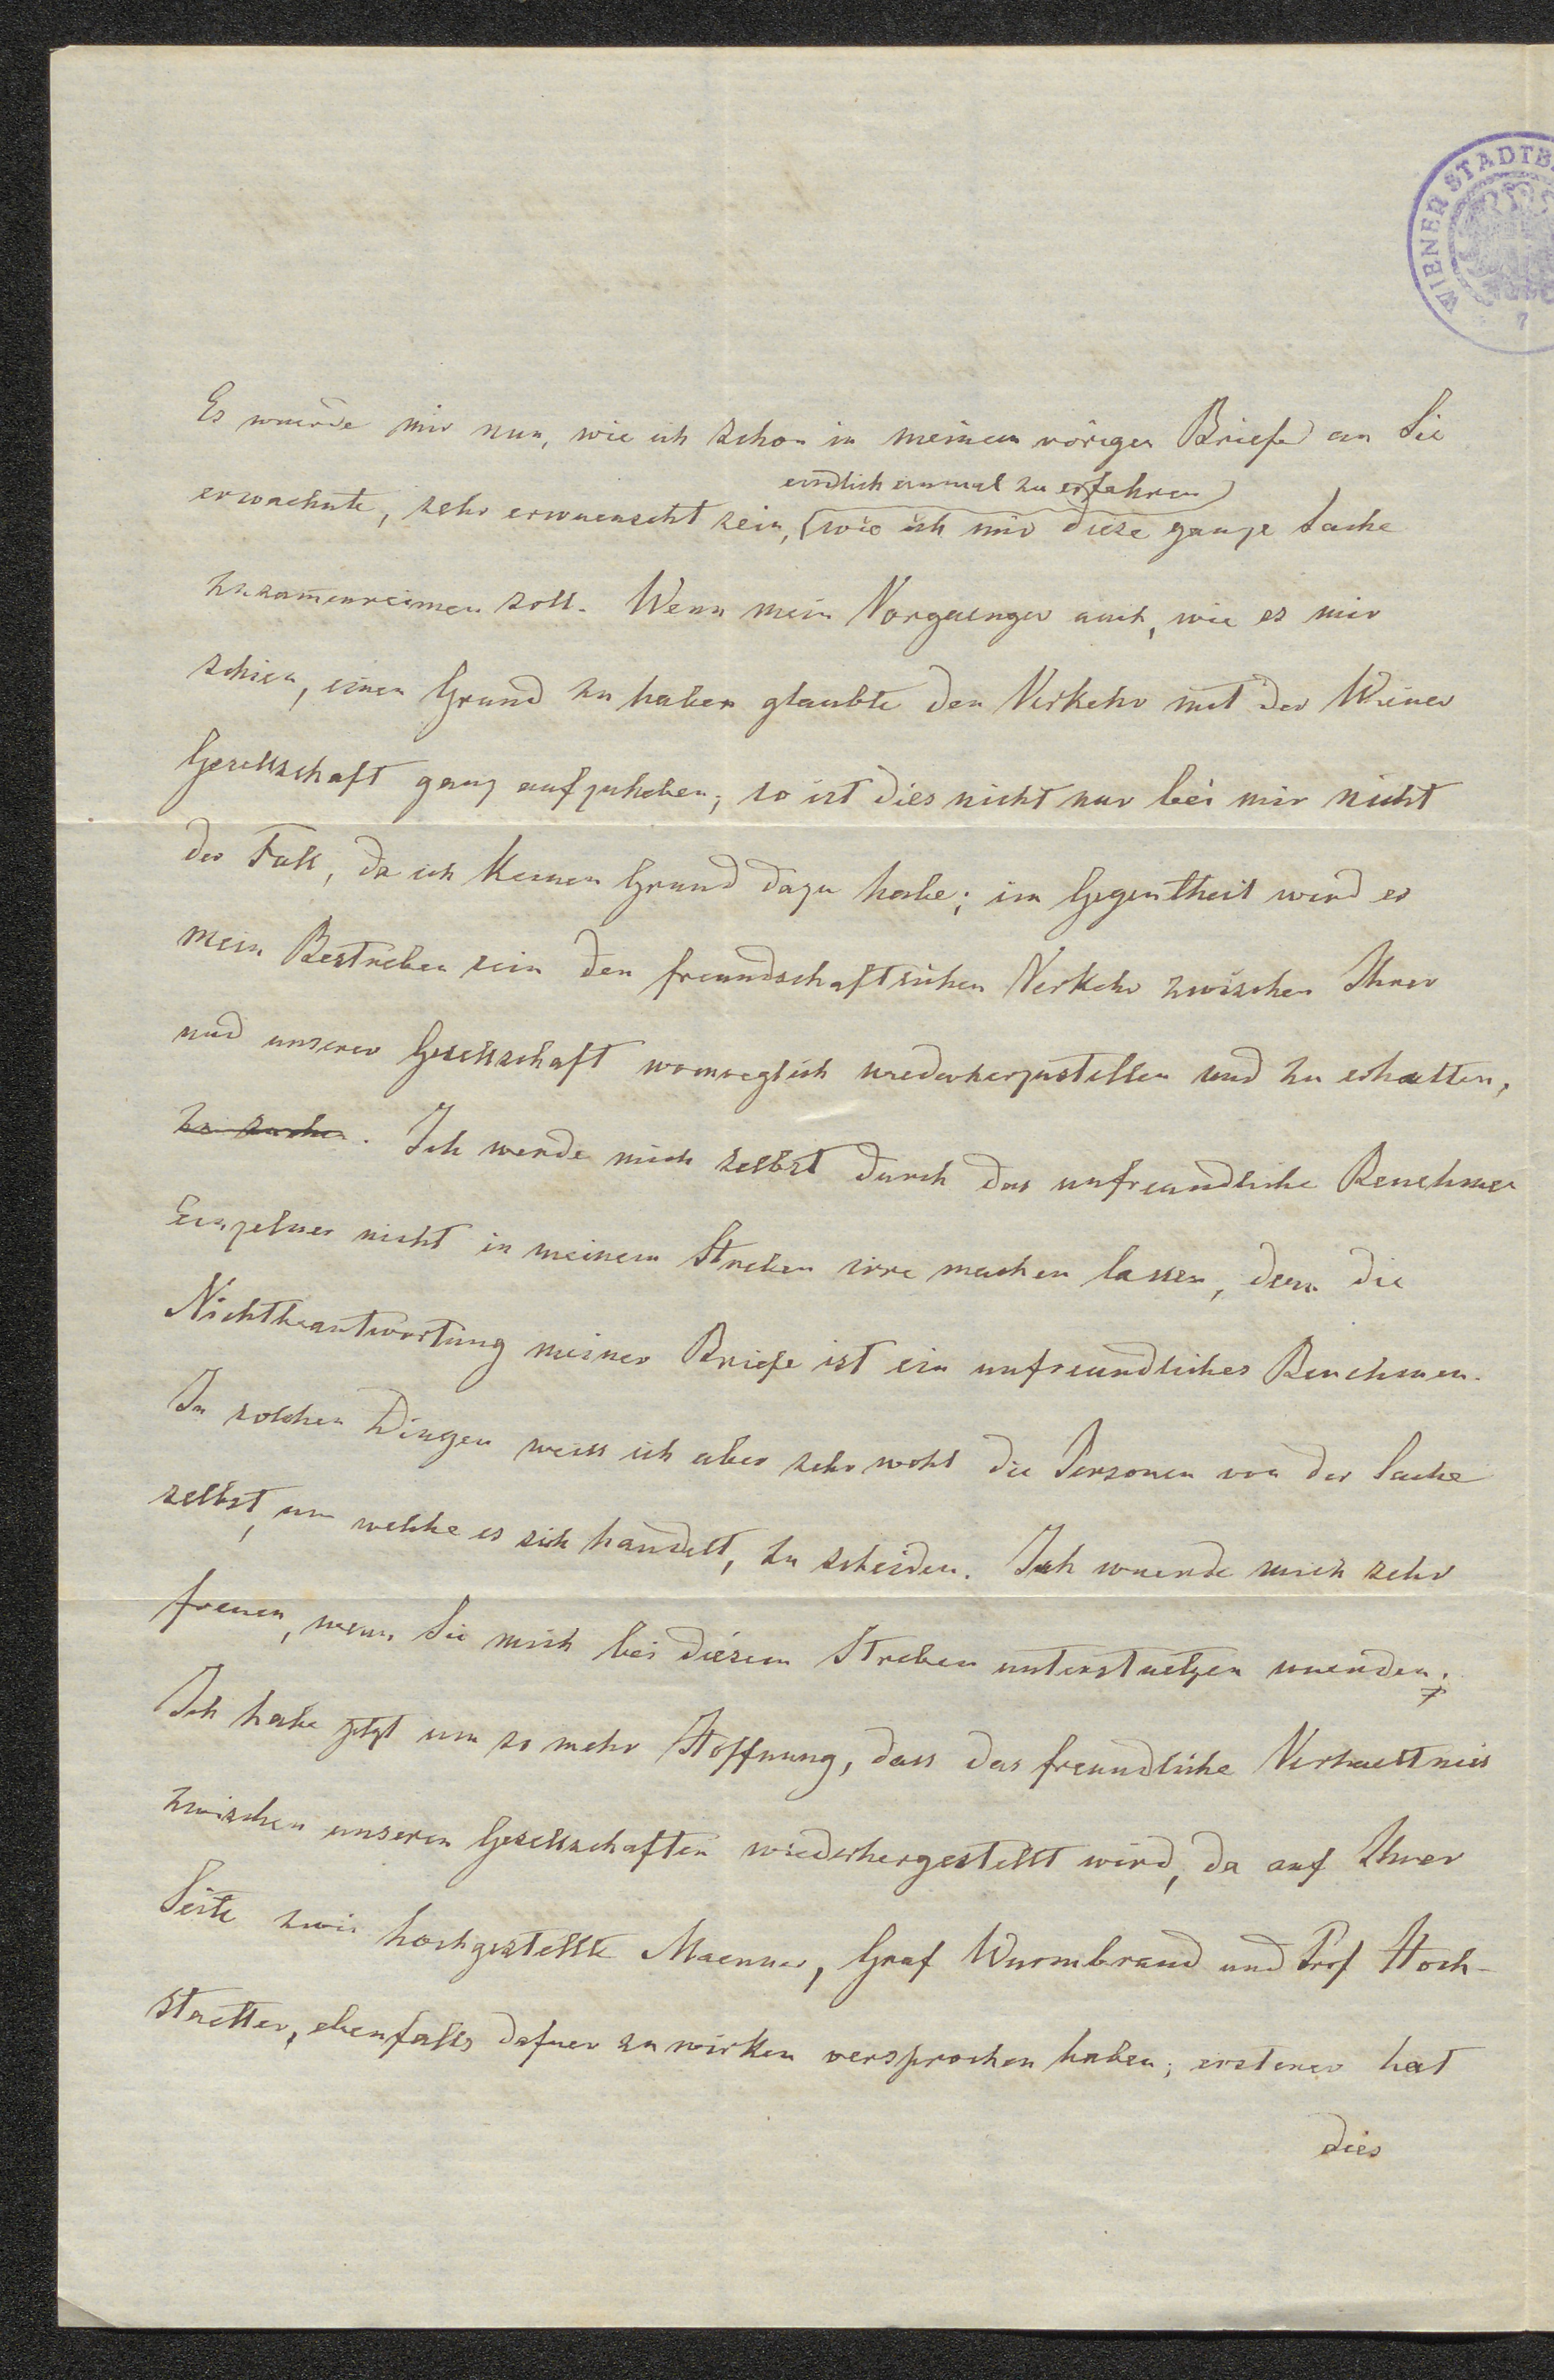 WIENER STADTB
7
Es wuerde mir nun, wie ich schon in meinem vorigen Briefe an Sie
endlich einmal zu erfahren
erwaehnte, sehr erwuenscht sein, wie ich mir diese ganze Sache
zusam̄enreimen soll. Wenn mein Vorgaenger auch, wie es mir
schien, einen Grund zu haben glaubte den Verkehr mit der Wiener
Gesellschaft ganz aufzuheben, so ist dies nicht nur bei mir nicht
der Fall, da ich keinen Grund dazu habe; im Gegentheil wird es
mein Bestreben sein den freundschaftlichen Verkehr zwischen Ihrer
und unserer Gesellschaft womoeglich wiederherzustellen und zu erhalten,
zu suchen. Ich werde mich selbst durch das unfreundliche Benehmen
Einzelner nicht in meinem Streben irre machen lassen, denn die
Nichtbeantwortung meiner Briefe ist ein unfreundliches Benehmen.
In solchen Dingen weiss ich aber sehr wohl die Personen von der Sache
selbst, um welche es sich handelt, zu scheiden. Ich wuerde mich sehr
freuen, wenn Sie mich bei diesem Streben unterstuetzen wuerden.
Ich habe jetzt um so mehr Hoffnung, dass das freundliche Verhaeltniss
zwischen unseren Gesellschaften wiederhergestellt wird, da auf Ihrer
Seite zwei hochgestellte Maenner, Graf Wurmbrand und Prof Hoch-
staetter, ebenfalls dafuer zu wirken versprochen haben; ersterer hat
dies